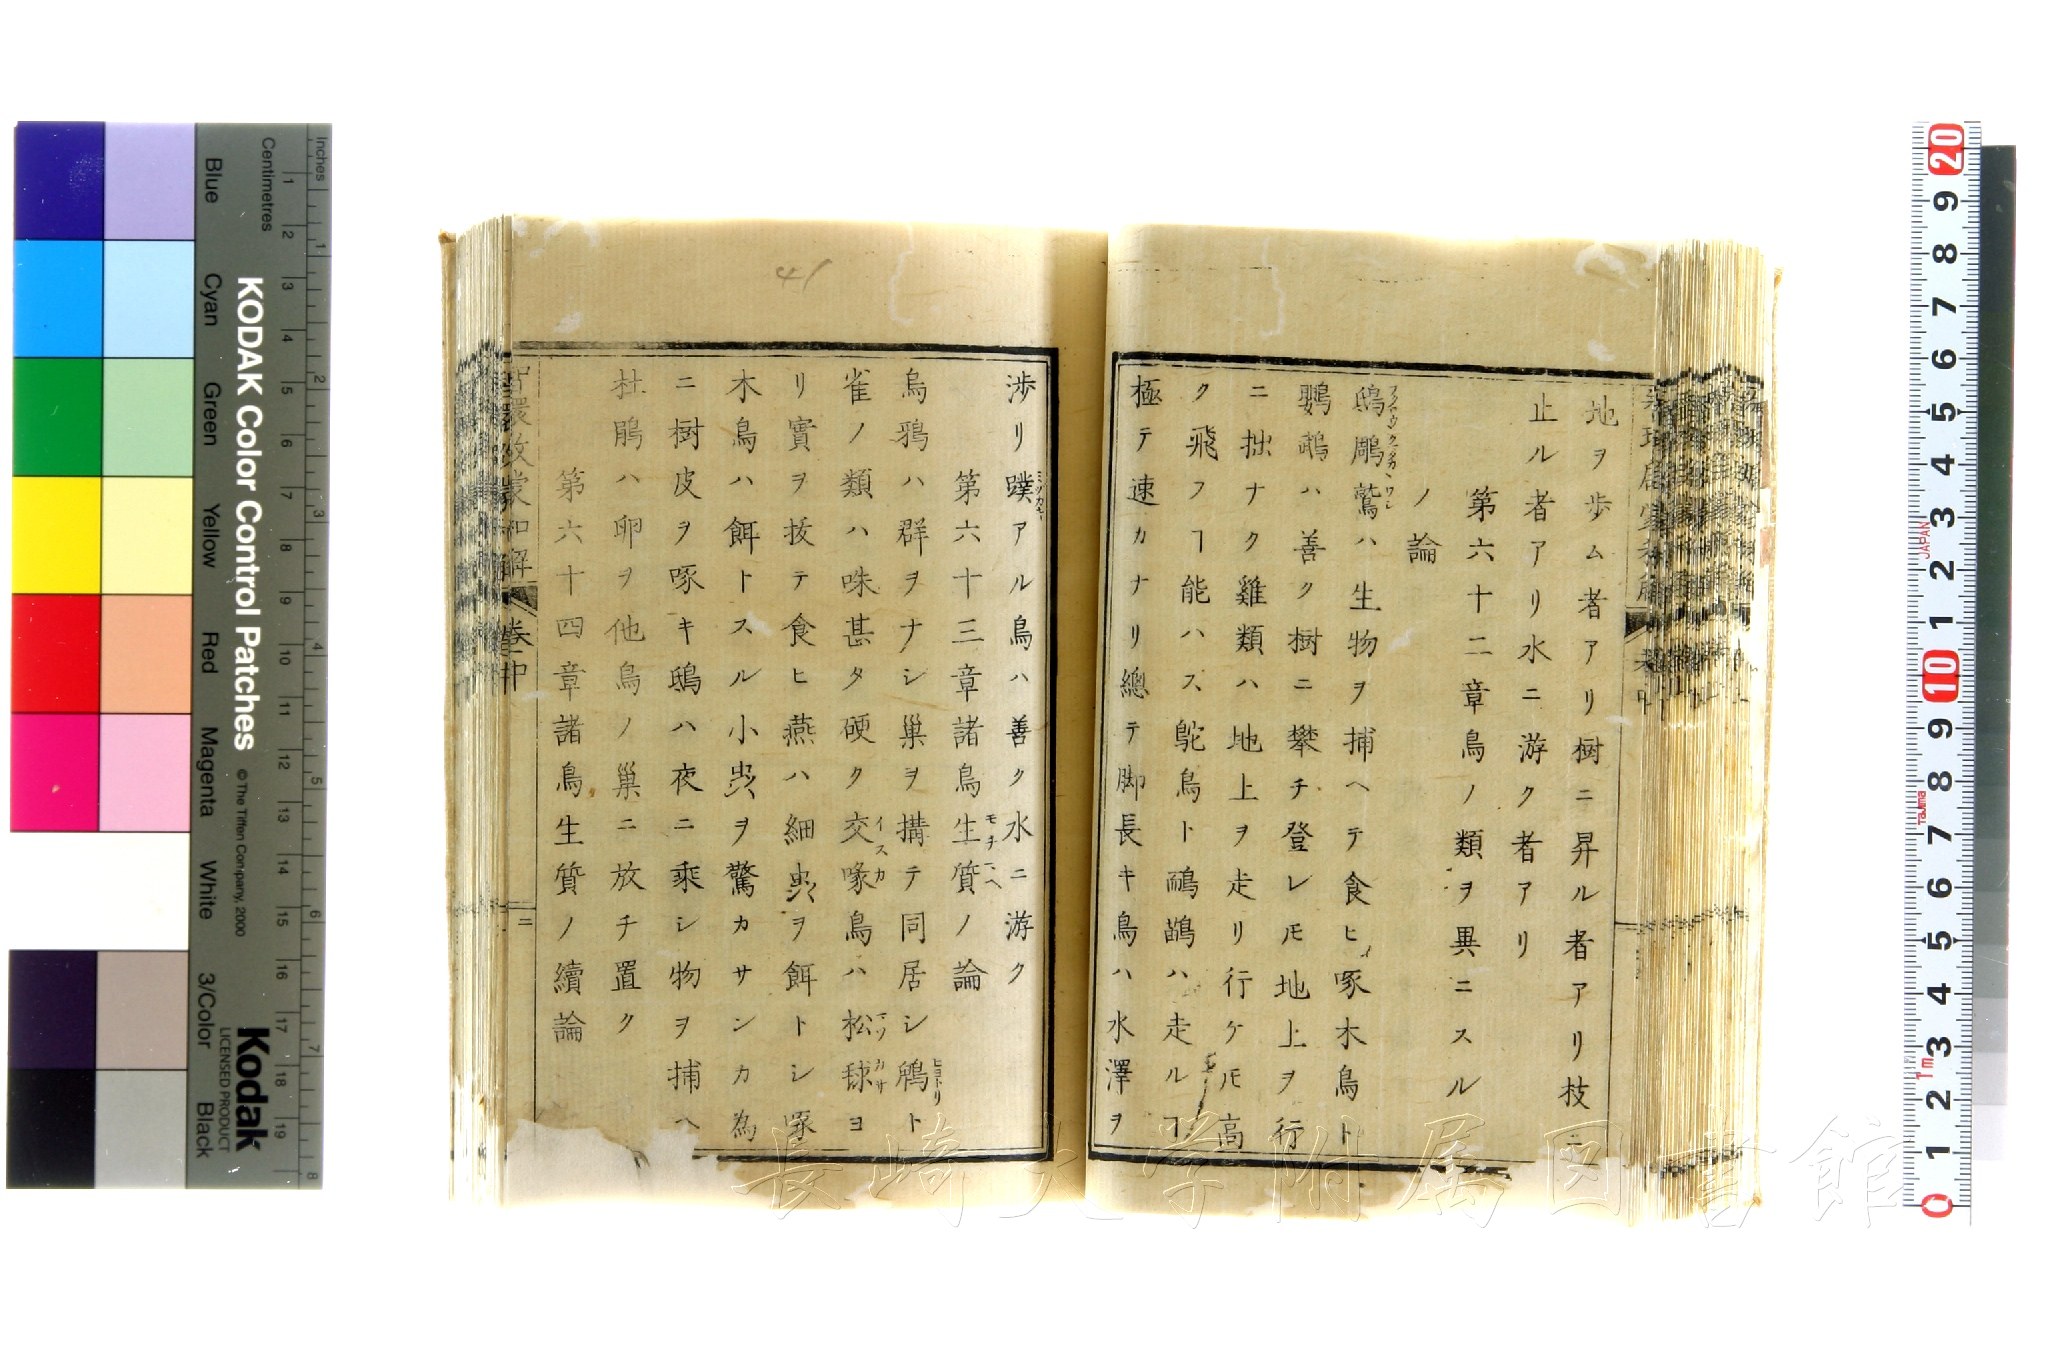 地ヲ歩ム者アリ樹ニ昇ル者アリ技ニ
止ル者アリ水ニ游ク者アリ
第六十二章鳥ノ類ヲ異ニスル
ノ論
鴟鵰鷲ハ生物ヲ捕ヘテ食ヒ啄木鳥ト
鸚鵡ハ善ク樹ニ攀チ登レ𪜈地上ヲ行
ニ拙ナク雞類ハ地上ヲ走リ行ケ𪜈高
ク飛フヿ能ハス鴕鳥ト鸸鶓ハ走ルヿ
極テ速カナリ總テ脚長キ鳥ハ水澤ヲ
渉リ蹼アル鳥ハ善ク水ニ游ク
第六十三章諸鳥生質ノ論
モチマヘ
烏鴉ハ群ヲナシ巢ヲ搆テ同居シ鵯ト
ヒヨトリ
雀ノ類ハ咮甚タ硬ク交喙鳥ハ松毬ヨ
イスカ
マツカサ
リ實ヲ抜テ食ヒ燕ハ細虫ヲ餌トシ啄
木鳥ハ餌トスル小虫ヲ驚カサンカ為
ニ樹皮ヲ啄キ鴟ハ夜ニ乘シ物ヲ捕ヘ
杜鵑ハ卵ヲ他鳥ノ巢ニ放チ置ク
第六十四章諸鳥生質ノ續論
啓蒙和解
卷中
二
41
長崎大学附属図書館
Inches
Centimetres
KODAK Color Control Patches
© The Tiffen Company, 2000
Kodak
LICENSED PRODUCT
Blue
Cyan
Green
Yellow
Red
Magenta
White
3/Color
Black
1 2 3 4 5 6 7 8 9 10 11 12 13 14 15 16 17 18 19
1 2 3 4 5 6 7 8
20 9 8 7 6 5 4 3 2 1 10 9 8 7 6 5 4 3 2 1 0
JAPAN
Tajima
1m